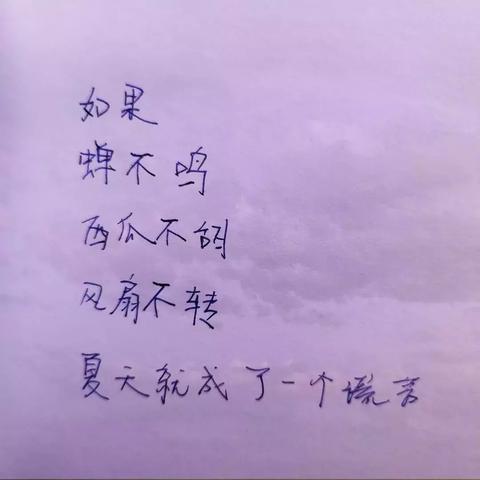 如果
蝉不鸣
西瓜不甜
风扇不转
夏天就成了一个谎言